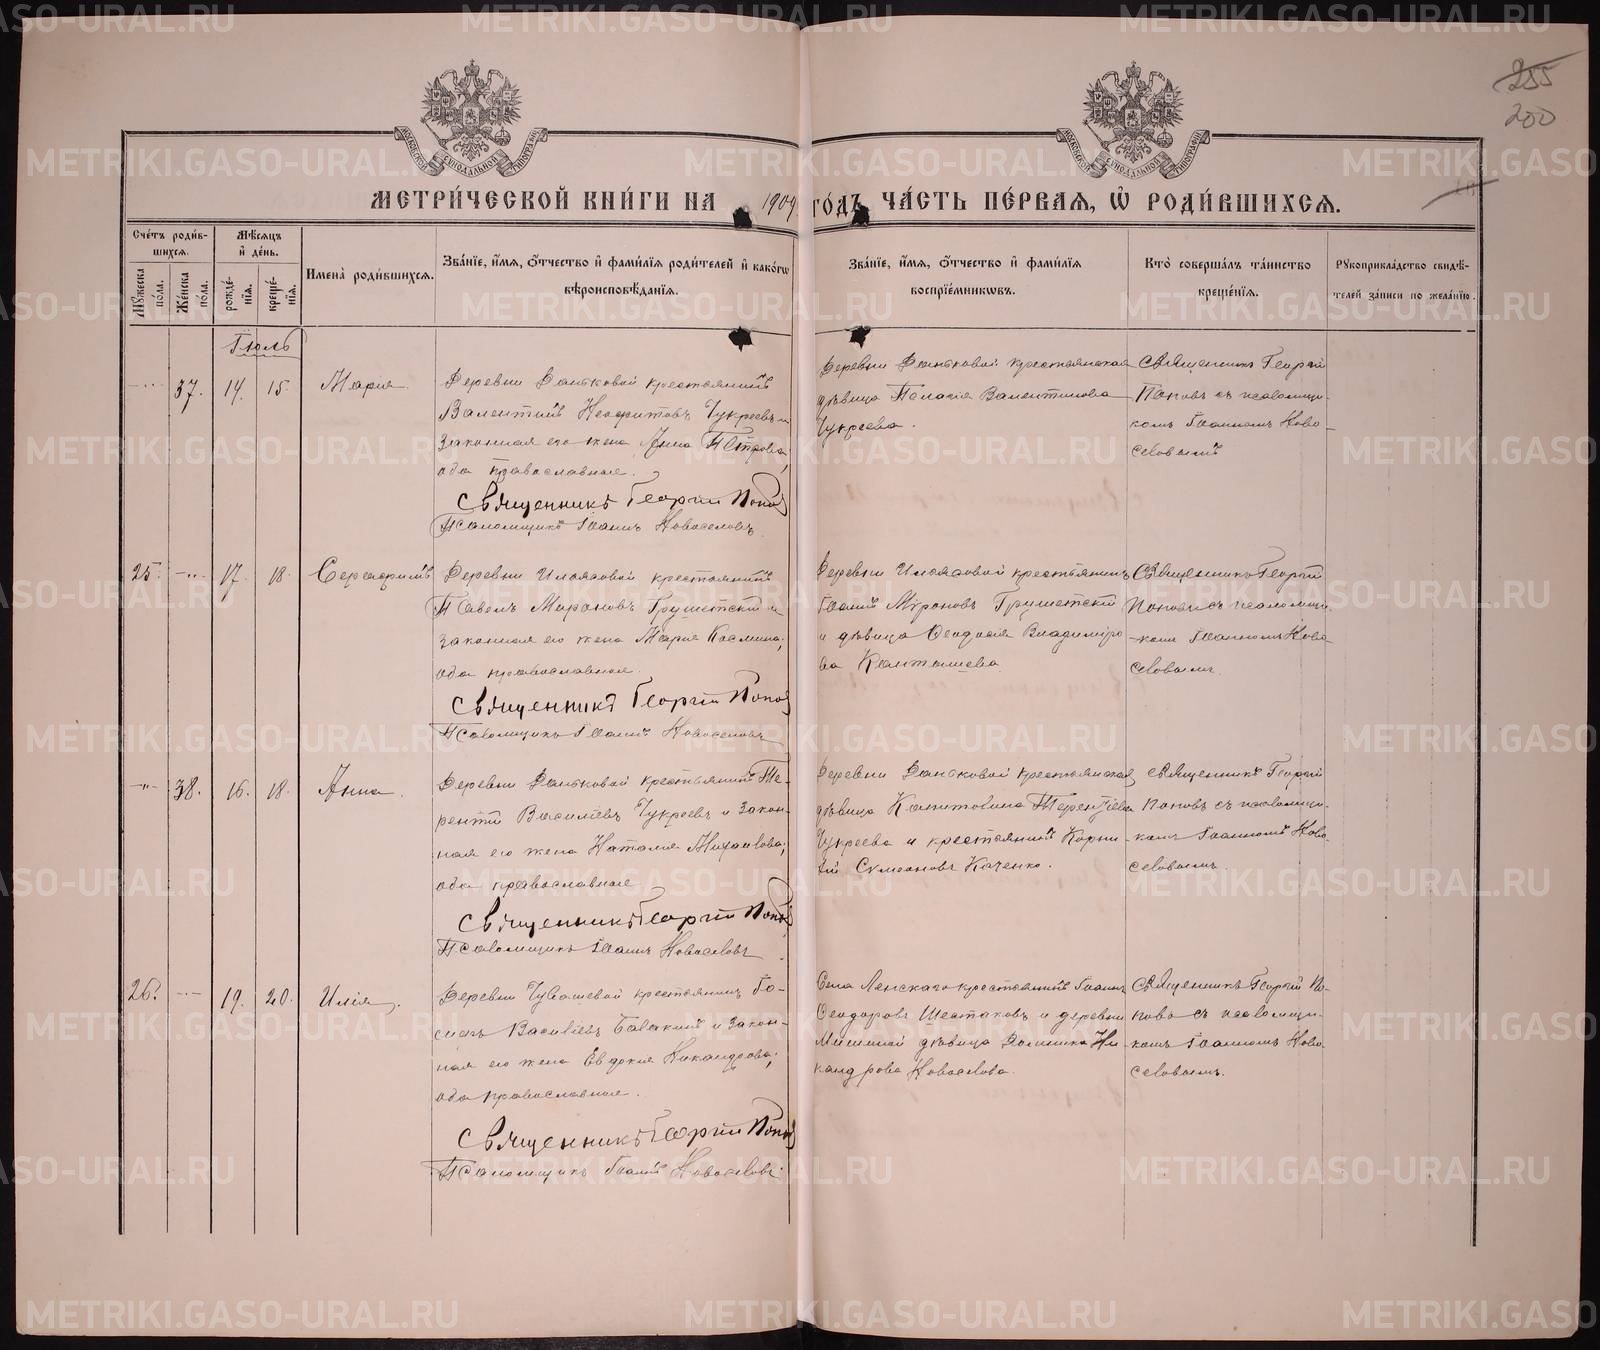 255
200
МОСКОВСКОЙ СѴНОДАЛЬНОЙ ТИПОГРАФІИ
МОСКОВСКОЙ СѴНОДАЛЬНОЙ ТИПОГРАФІИ
МЕТРИ́ЧЕСКОЙ КНИ́ГИ НА 1909 ГОДЪ ЧА́СТЬ ПЕ́РВАЯ, Ѡ РОДИ́ВШИХСЯ.
Сче́тъ роди́в-
шихся.
Мѣ́сяцъ
и҆ де́нь.
Мꙋ́жеска
по́ла.
Же́нска
по́ла.
рожде́-
нїѧ.
креще́-
нїѧ.
И҆мена̀ роди́вшихся.
Зва́нїе, и҆́мѧ, ѻ҆́тчество и҆ фами́лїѧ роди́телей и҆ како́гѡ
вѣроисповѣ́данїѧ.
Зва́нїе, и҆́мѧ, ѻ҆́тчество и҆ фами́лїѧ
воспрїе́мникѡвъ.
Кто̀ соверша́лъ та́инство
креще́нїѧ.
Рꙋкоприкла́дство свидѣ́-
телей за́писи по жела́нїю.
Іюль
37. 14. 15. Марія.
Деревни Валтковой крестьянинъ
Валентинъ Неофитовъ Чукреевъ и
законная его жена Анна Петрова,
оба православные.
Священникъ Георгій Попов
Псаломщикъ Іоаннъ Новоселовъ.
крестьянская
дѣвица Пелагія Валентинова
Чукреева.
Священникъ Георгій
Поповъ съ псаломщи-
комъ Іоанномъ Ново-
селовымъ
25. 17. 18. Серафимъ
Деревни Ильясовой крестьянинъ
Павелъ Мироновъ Грушетскій и
законная его жена Марія Космина,
оба православные.
Священникъ Георгій Попов
Псаломщикъ Іоаннъ Новоселовъ
Деревни Ильясовой крестьянинъ
Іоаннъ Мироновъ Грушетскій
и дѣвица Ѳеодосія Владиміро-
ва
Священникъ Георгій
Поповъ съ псаломщи-
комъ Іоанномъ Ново-
селовымъ.
38. 16. 18. Анна.
Деревни крестьянинъ Те-
рентій Василіевъ Чукреевъ и закон-
ная его жена Наталія Михаилова,
оба православные
Священникъ Георгій Попов
Псаломщикъ Іоаннъ Новоселовъ
Деревни крестьянская
дѣвица Капитолина Терентіева
Чукреева и крестьянинъ Корни-
лій Сѵмеоновъ Каченко.
Священникъ Георгій
Поповъ съ псаломщи-
комъ Іоанномъ Ново-
селовымъ.
26. 19. 20. Илія.
Деревни Чувашевой крестьянинъ Іо-
сифъ Василіевъ и закон-
ная его жена Евдокія Никандрова,
оба православные.
Священникъ Георгій Попов
Псаломщикъ Іоаннъ Новоселовъ
Села Ленскаго крестьянинъ Іоаннъ
Ѳеодоровъ Шестаковъ и деревни
Мишиной дѣвица Домника Ни-
кандрова Новоселова.
Священникъ Георгій По-
повъ съ псаломщи-
комъ Іоанномъ Ново-
селовымъ.
METRIKI.GASO-URAL.RU